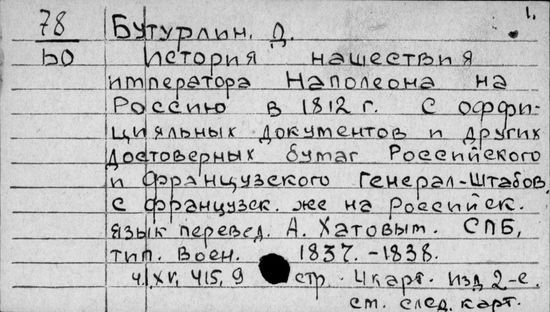 1.
78 Бутурлин. Д.
ЬО История нашествия
императора Наполеона на
Россию в 1812 г. с оффи-
цияльных документов и других
достоверных бумаг Российского
и французского Генерал-Штабов.
с французск. же на Российск.
язык перевед. А. Хатовым. СПБ,
тип. Воен. 1837. -1838.
Ч.I XV, 415, 9 стр. 4 карт. изд 2-е.
см. след. карт.